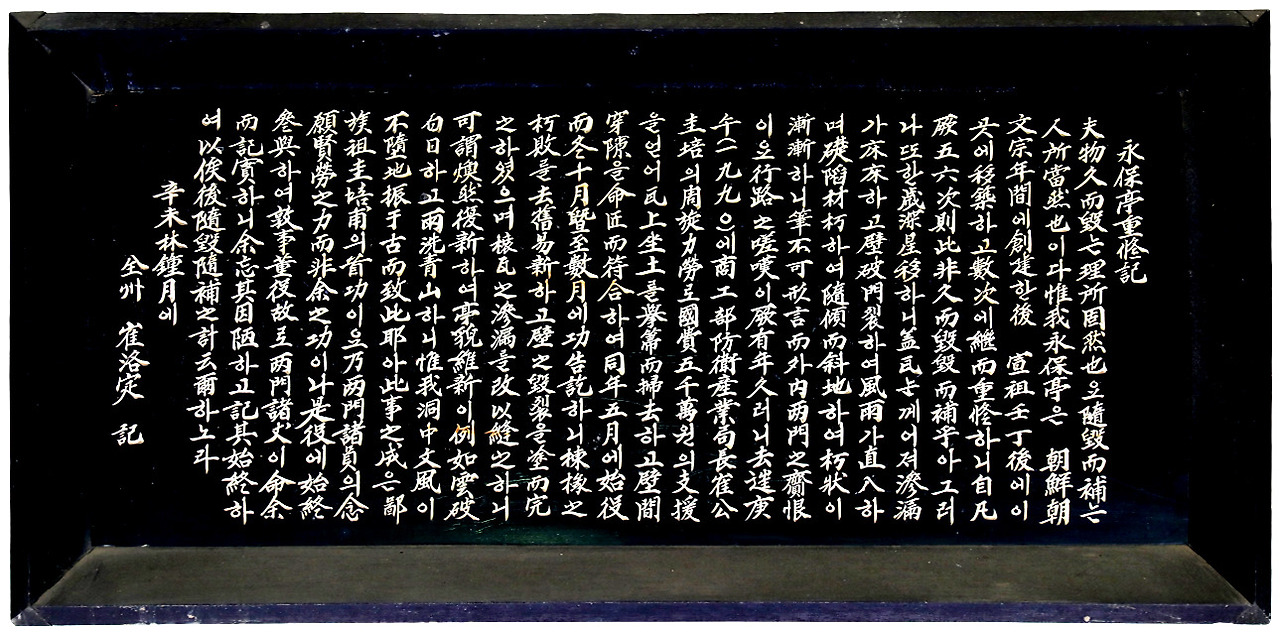 永保亭重修記
夫物久而毀는理所固然也오隨毀而補는
人所當然也이다惟我永保亭은 朝鮮朝
文宗年間에創建한後 宣祖壬丁後에이
곳에移築하고數次에繼而重修하니自凡
厥五六次則此非久而毀毀而補乎아그러
나또한歲深星移하니盖瓦는깨어져滲漏
가床床하고壁破門裂하여風雨가直入하
며礎陷材朽하여隨傾而斜地하여朽狀이
漸漸하니筆不可形言而外內兩門之齎恨
이오行路之嗟嘆이厥有年久러니去逆庚
午(一九九○)에商工部防衛産業局長崔公
圭培의周旋力勞로國賞五千萬원의支援
을얻어瓦上坐土를擧箒而掃去하고壁間
穿隙을命匠而符合하여同年五月에始役
而冬十月曁至數月에功告訖하니棟椽之
朽敗를去舊易新하고壁之毀裂을塗而完
之하였으며椽瓦之滲漏를改以縫之하니
可謂煥然復新하여亭貌維新이例如雲破
白日하고雨洗靑山하니惟我洞中文風이
不墮地振于古而致此耶아此事之成은鄙
族祖圭培甫의首功이오乃兩門諸員의念
願賢勞之力而非余之功이나是役에始終
參與하여敦事董役故로兩門諸丈이命余
而記實하니余忘其固陋하고記其始終하
여以俟後隨毀隨補之計云爾하노라
辛未林鍾月에
全州 崔洛定 記